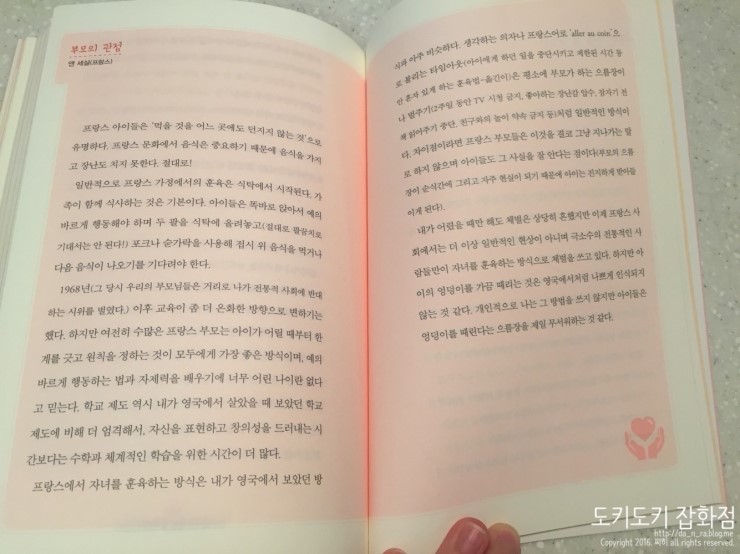 부모의 관점
앤 세실(프랑스)
프랑스 아이들은 '먹을 것을 어느 곳에도 던지지 않는 것'으로
유명하다. 프랑스 문화에서 음식은 중요하기 때문에 음식을 가지
고 장난도 치지 못한다. 절대로!
일반적으로 프랑스 가정에서의 훈육은 식탁에서 시작된다. 가
족이 함께 식사하는 것은 기본이다. 아이들은 똑바로 앉아서 예의
바르게 행동해야 하며 두 팔을 식탁에 올려놓고(절대로 팔꿈치로
기대서는 안 된다!) 포크나 숟가락을 사용해 접시 위 음식을 먹거나
다음 음식이 나오기를 기다려야 한다.
1968년(그 당시 우리의 부모님들은 거리로 나가 전통적 사회에 반대
하는 시위를 벌였다.) 이후 교육이 좀 더 온화한 방향으로 변하기는
했다. 하지만 여전히 수많은 프랑스 부모는 아이가 어릴 때부터 한
계를 긋고 원칙을 정하는 것이 모두에게 가장 좋은 방식이며, 예의
바르게 행동하는 법과 자제력을 배우기에 너무 어린 나이란 없다
고 믿는다. 학교 제도 역시 내가 영국에서 살았을 때 보았던 학교
제도에 비해 더 엄격해서, 자신을 표현하고 창의성을 드러내는 시
간보다는 수학과 체계적인 학습을 위한 시간이 더 많다.
프랑스에서 자녀를 훈육하는 방식은 내가 영국에서 보았던 방
식과 아주 비슷하다. 생각하는 의자나 프랑스어로 'aller au coin'으
로 불리는 타임아웃(아이에게 하던 일을 중단시키고 제한된 시간 동
안 혼자 있게 하는 훈육법-옮긴이)은 평소에 부모가 하는 으름장이
나 벌주기(2주일 동안 TV 시청 금지, 좋아하는 장난감 압수, 잠자기 전
책 읽어주기 중단, 친구와의 놀이 약속 금지 등)처럼 일반적인 방식이
다. 차이점이라면 프랑스 부모들은 이것을 결코 그냥 지나가는 말
로 하지 않으며 아이들도 그 사실을 잘 안다는 점이다(부모의 으름
장이 순식간에 그리고 자주 현실이 되기 때문에 아이는 진지하게 받아들
이게 된다).
내가 어렸을 때만 해도 체벌은 상당히 흔했지만 이제 프랑스 사
회에서는 더 이상 일반적인 현상이 아니며 극소수의 전통적인 사
람들만이 자녀를 훈육하는 방식으로 체벌을 쓰고 있다. 하지만 아
이의 엉덩이를 가끔 때리는 것은 영국에서처럼 나쁘게 인식되지
않는 것 같다. 개인적으로 나는 그 방법을 쓰지 않지만 아이들은
엉덩이를 때린다는 으름장을 제일 무서워하는 것 같다.
도키도키 잡화점
http://da_n_ra.blog.me
Copyright 2016. all rights reserved.